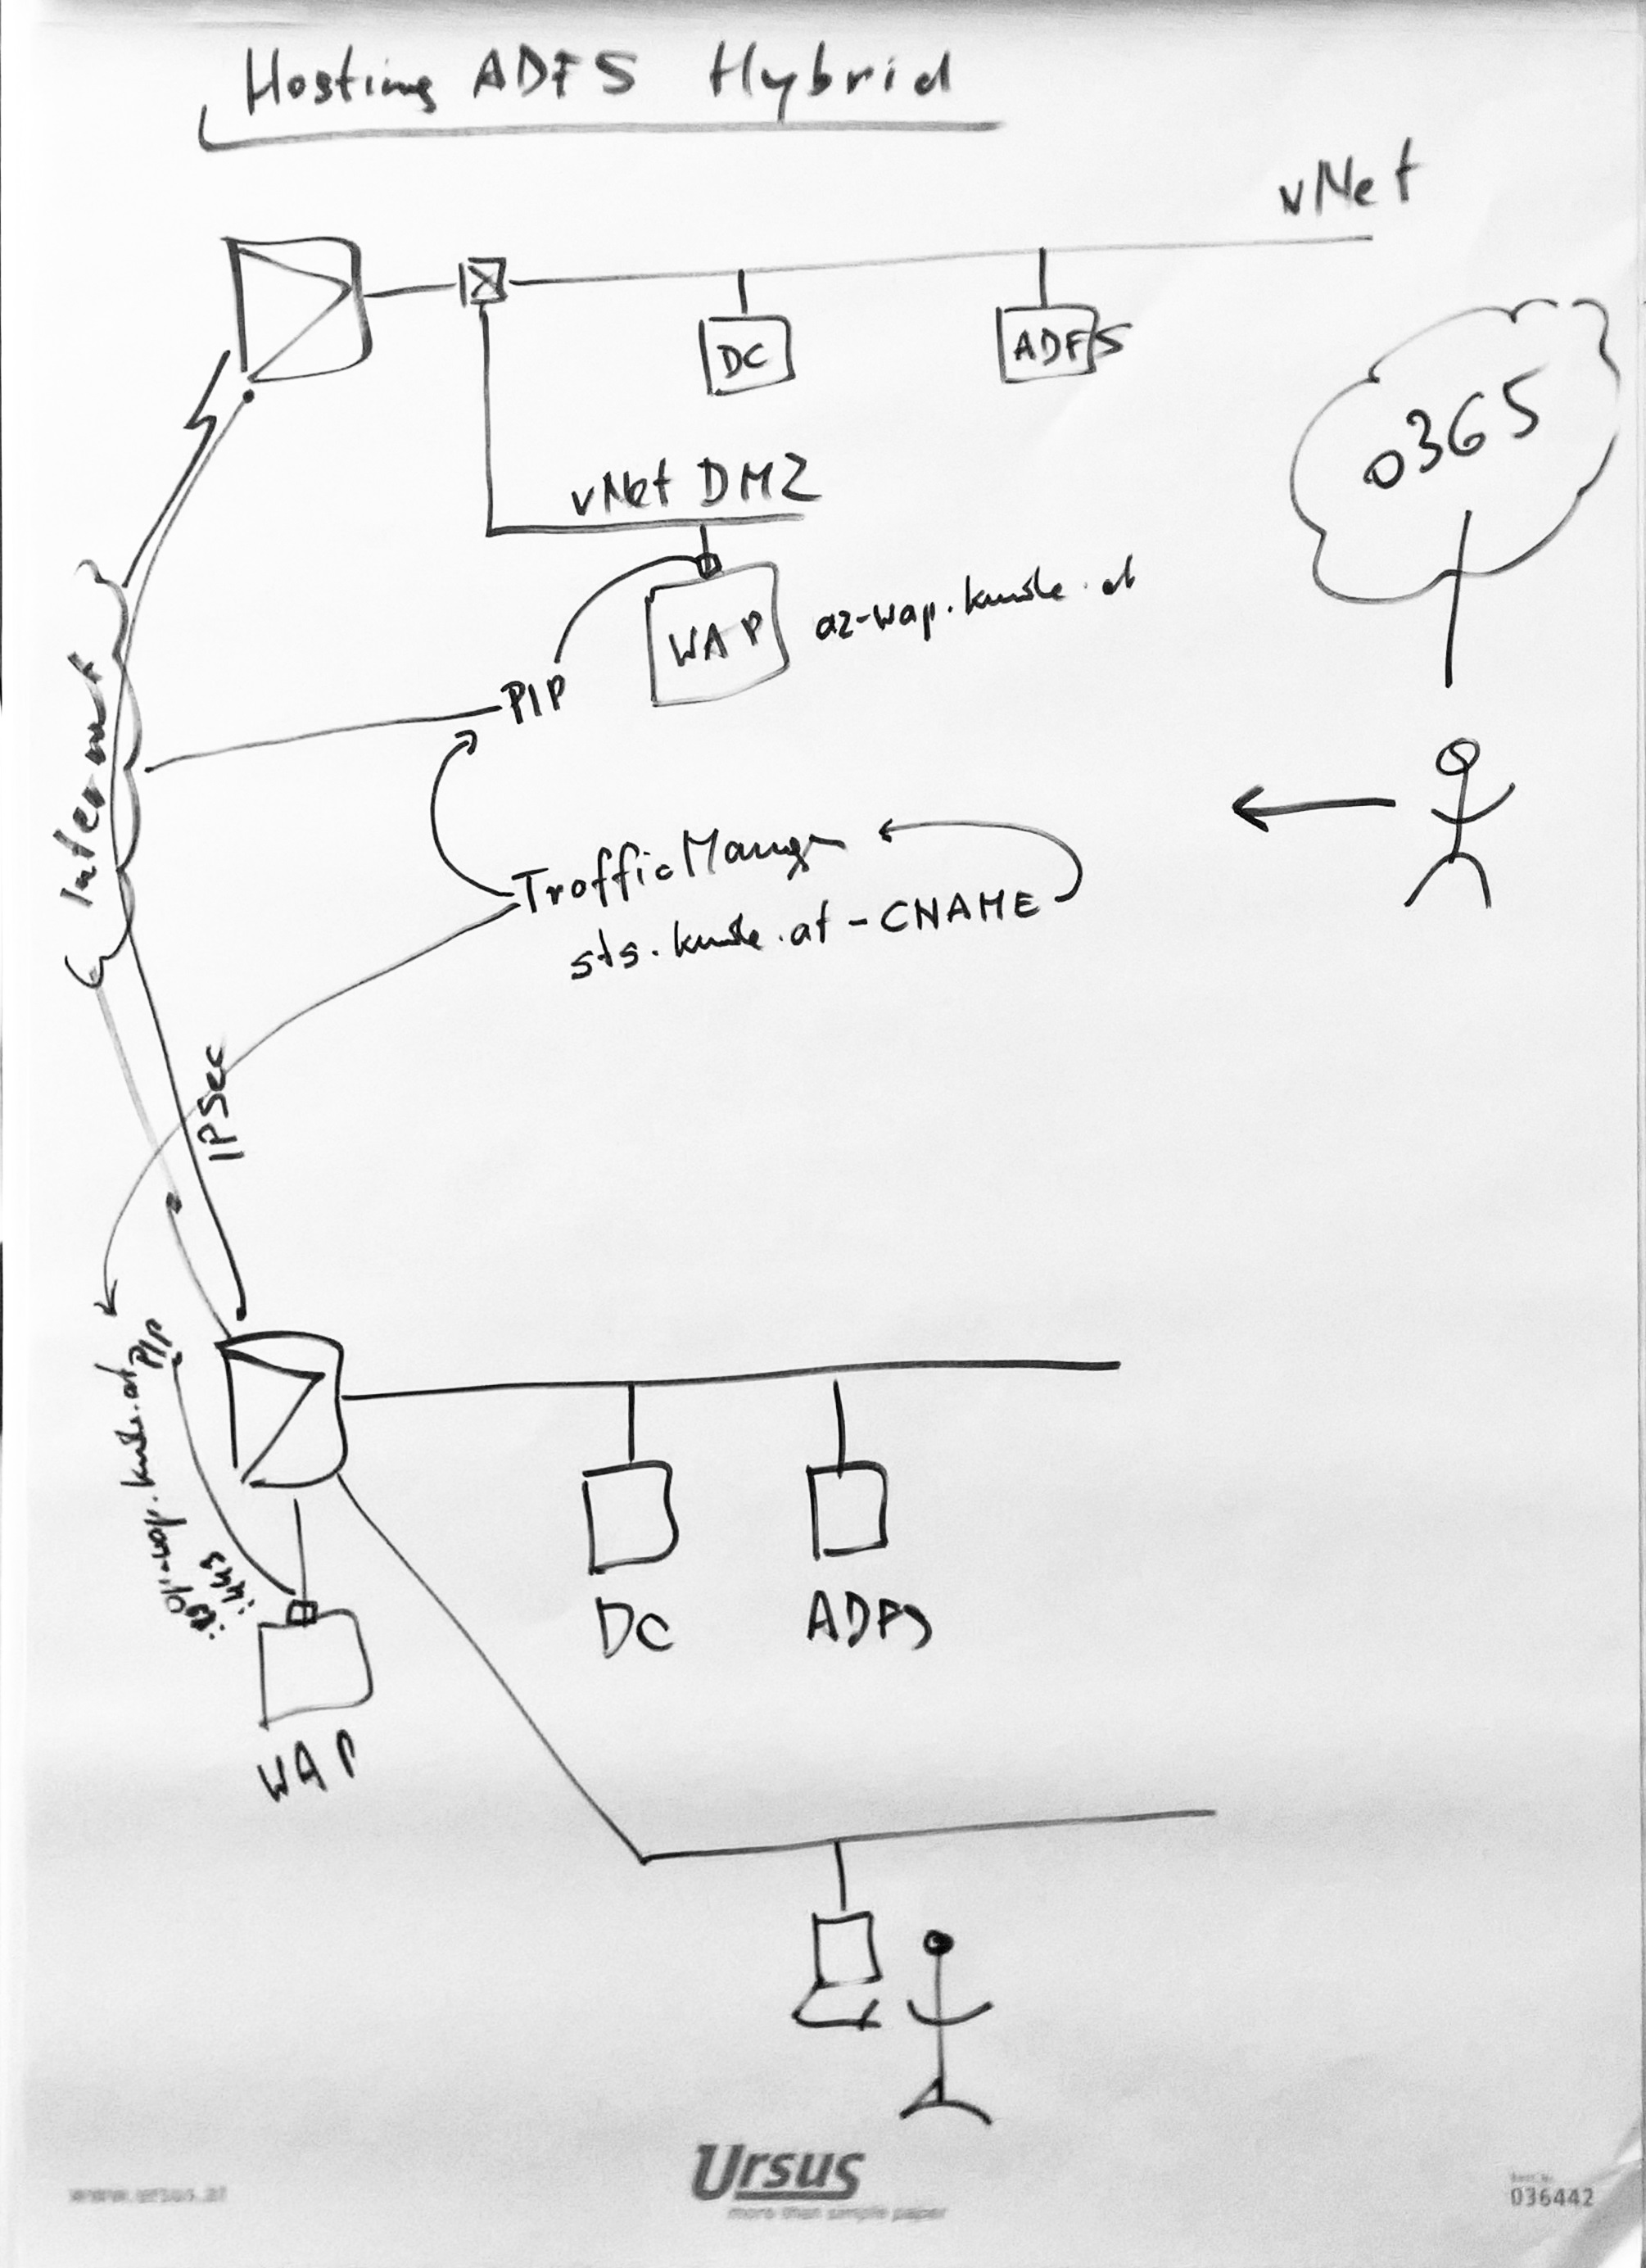 Hosting ADFS Hybrid
vNet
DC
ADFS
O365
vNet DMZ
WAP
az-wap.kunde.at
PIP
Internet
TrafficManger
sts.kunde.at - CNAME
IPSec
PIP
op-wap.kunde.at
:443
DC
ADFS
WAP
Ursus
more than simple paper
www.ursus.at
036442